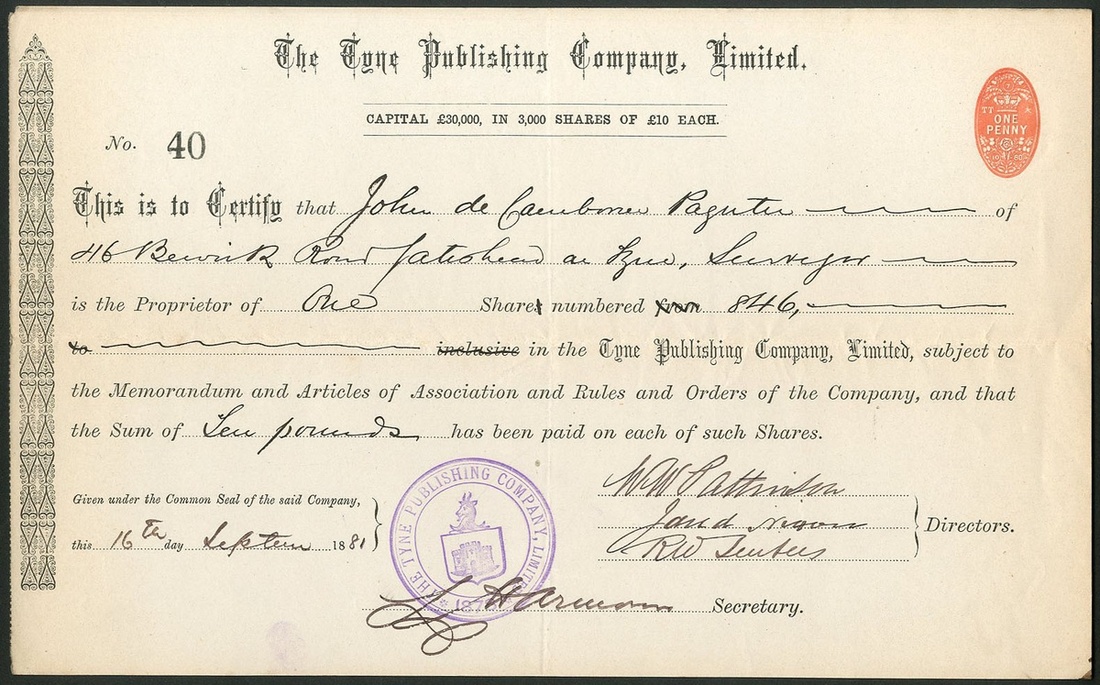 The Tyne Publishing Company, Limited.
CAPITAL £30,000, IN 3,000 SHARES OF £10 EACH.
ONE
PENNY
No. 40
This is to Certify that John de Camborne Paynter of
46 Bewick Road Gateshead on Tyne, Surveyor
is the Proprietor of One Shares numbered from 846,
to inclusive in the Tyne Publishing Company, Limited, subject to
the Memorandum and Articles of Association and Rules and Orders of the Company, and that
the Sum of Ten pounds has been paid on each of such Shares.
Given under the Common Seal of the said Company,
this 16th day Septem 1881
THE TYNE PUBLISHING COMPANY, LIMITED
W W Pattinson
R W
Directors.
Secretary.